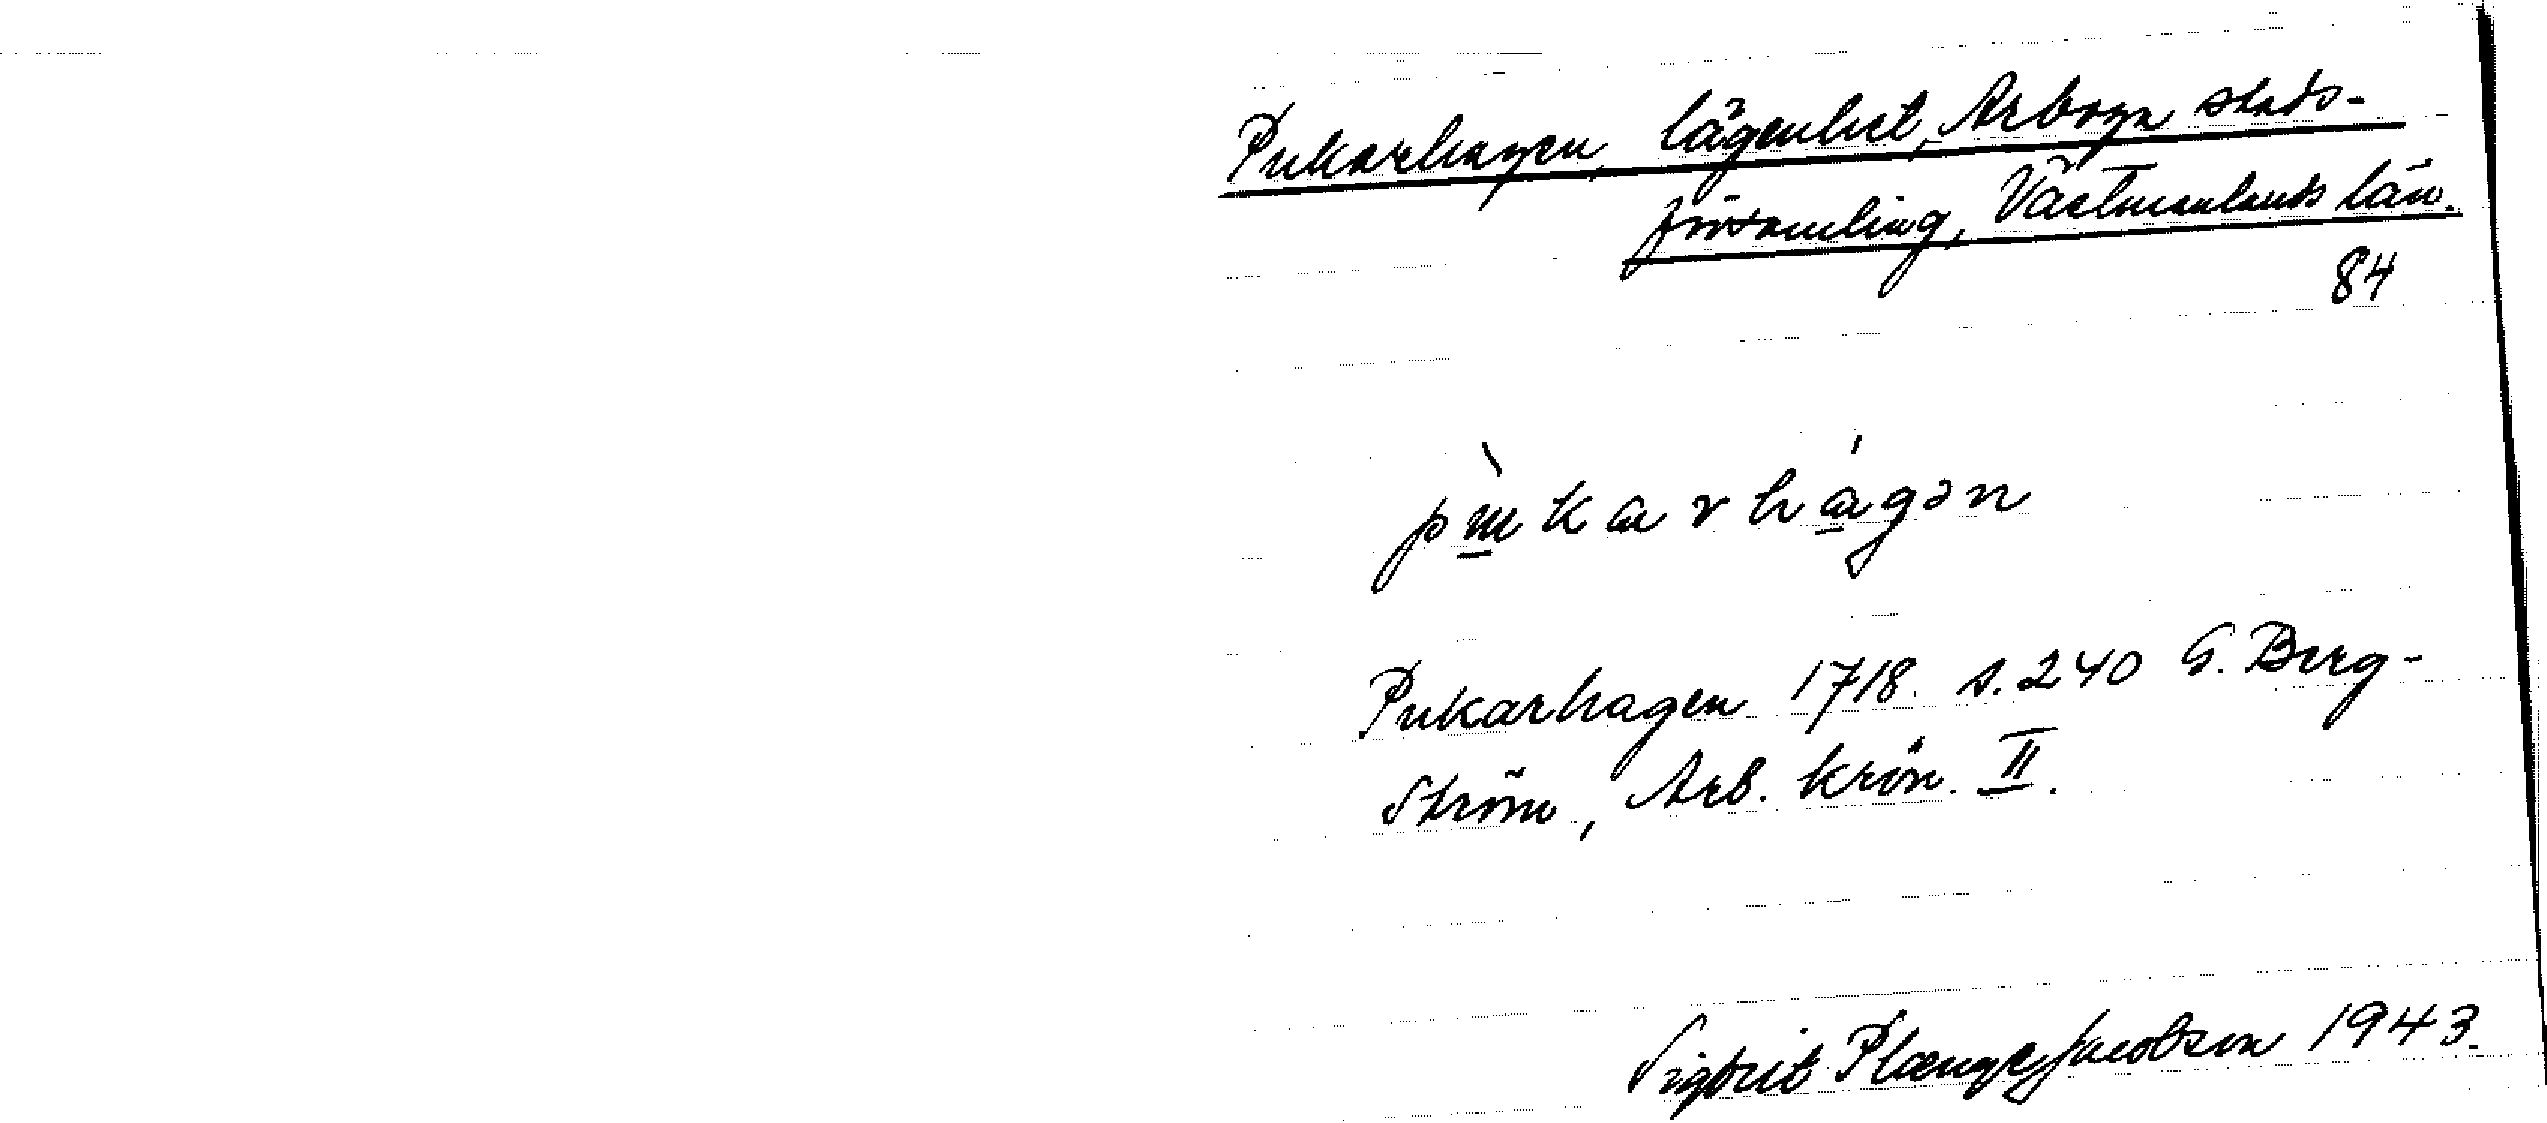 Pukarhagen, lägenhet, Arboga stads-
församling, Västmanlands län.
84
pɯ̀karhágən
Pukarhagen 1718. s. 240 G. Berg-
ström, Arb. krön. II.
Sigfrit Plænge Jacobson 1943.